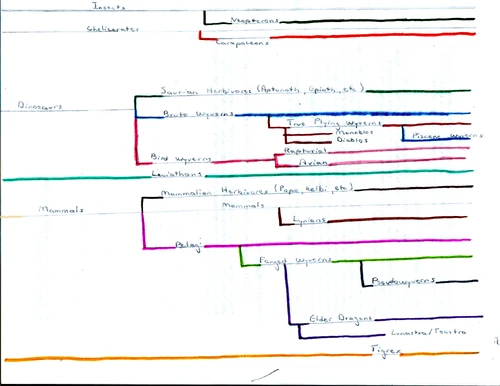 Insects
Neopterons
Cheliserates
Carapaceons
Saurian Herbivores (Aptonoth, Apiath, etc)
Dinosaurs
Brute Wyverns
True Flying Wyverns
Monoblos
Piscene Wyverns
Diablos
Raptorial
Bird Wyverns
Avian
Leviathans
Mammalian Herbivores (Popo, Kelbi, etc)
Mammals
Mammals
Lynians
Pelagi
Fanged Wyverns
Elder Dragons
Lunastra/Teostra
Tigrex